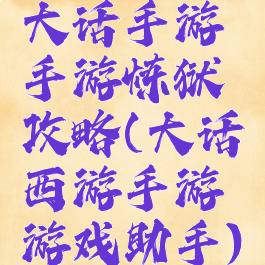 大话手游
手游炼狱
攻略(大话
西游手游
游戏助手)